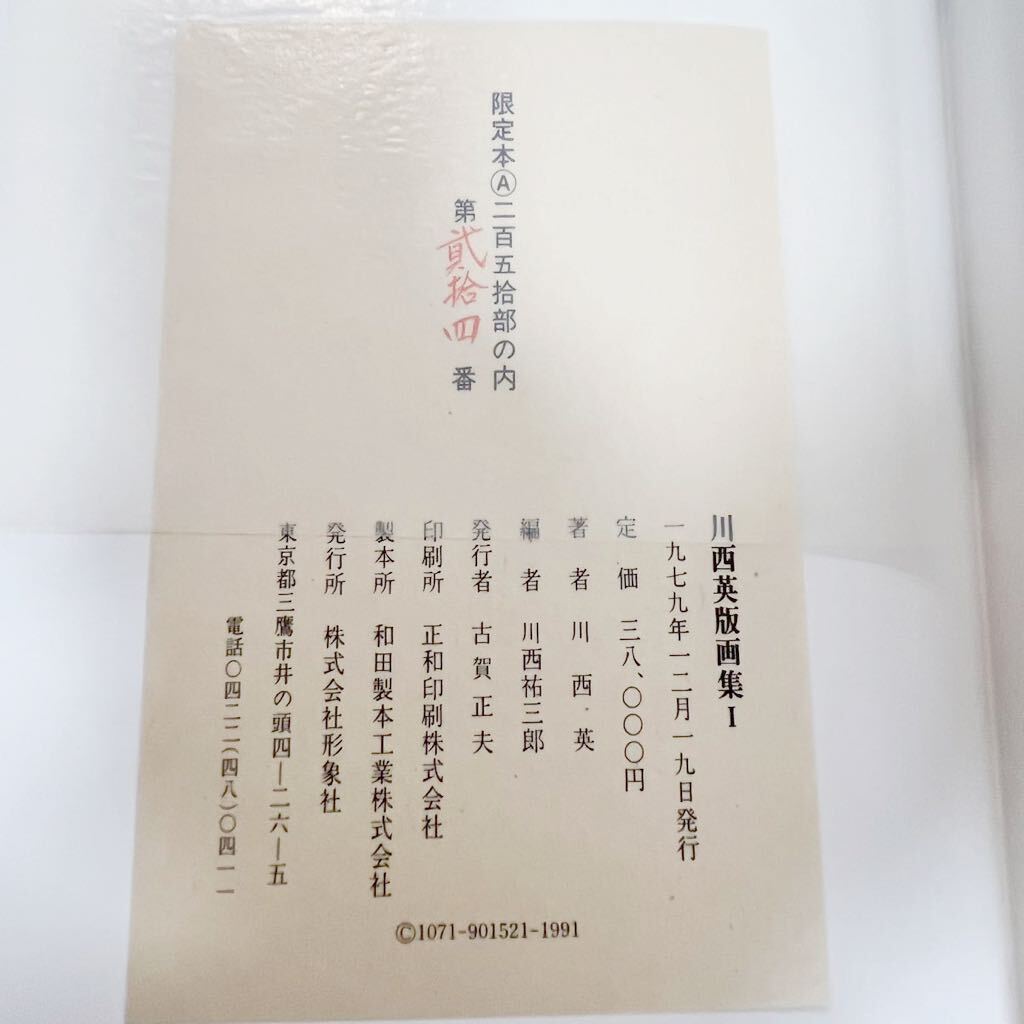 限定本Ⓐ二百五拾部の内
第貮拾四番
川西英版画集Ⅰ
一九七九年一二月一九日発行
定価 三八、〇〇〇円
著者 川西英
編者 川西祐三郎
発行者 古賀正夫
印刷所 正和印刷株式会社
製本所 和田製本工業株式会社
発行所 株式会社形象社
東京都三鷹市井の頭四—二六—五
電話〇四二二(四八)〇四一一
©1071-901521-1991